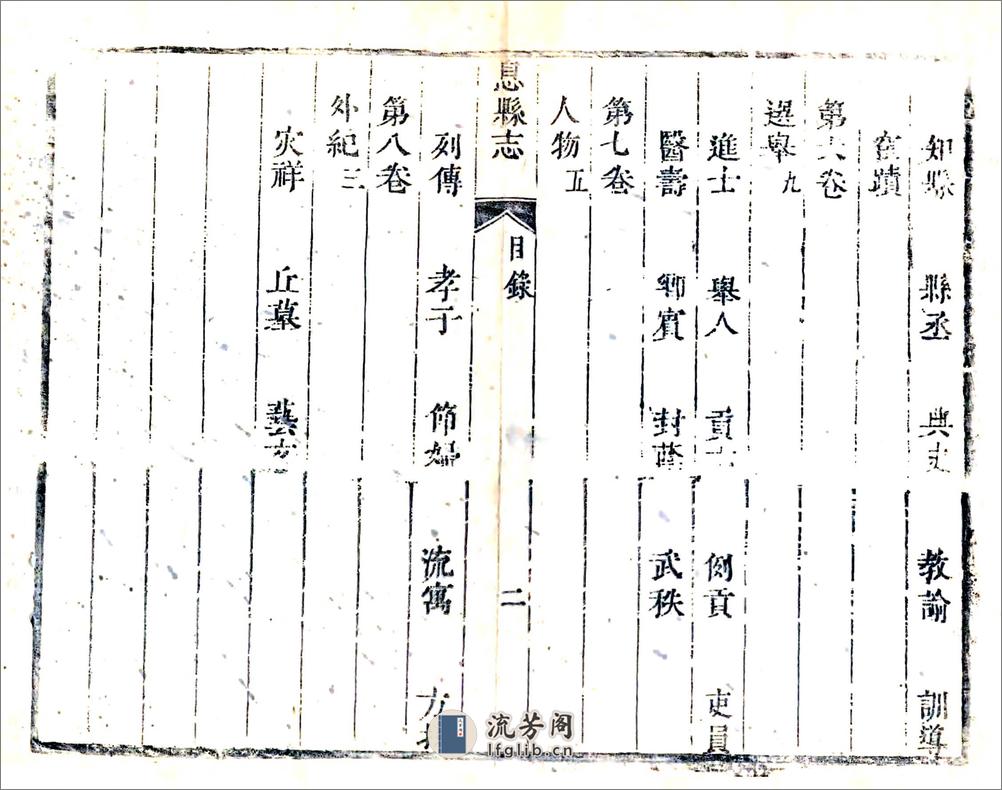 知縣 縣丞 典史 教諭 訓導
宦蹟
第六卷
選舉九
進士 舉人 貢士 例貢 吏員
醫壽 鄉賓 封廕 武秩
第七卷
人物五
息縣志 目錄 二
列傳 孝子 節婦 流寓 方技
第八卷
外紀三
灾祥 丘墓 藝文
流芳阁
lfglib.cn